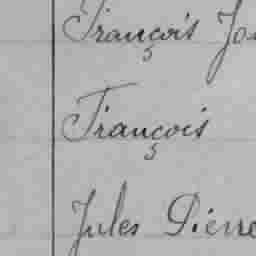 François
François
Jules Pierre